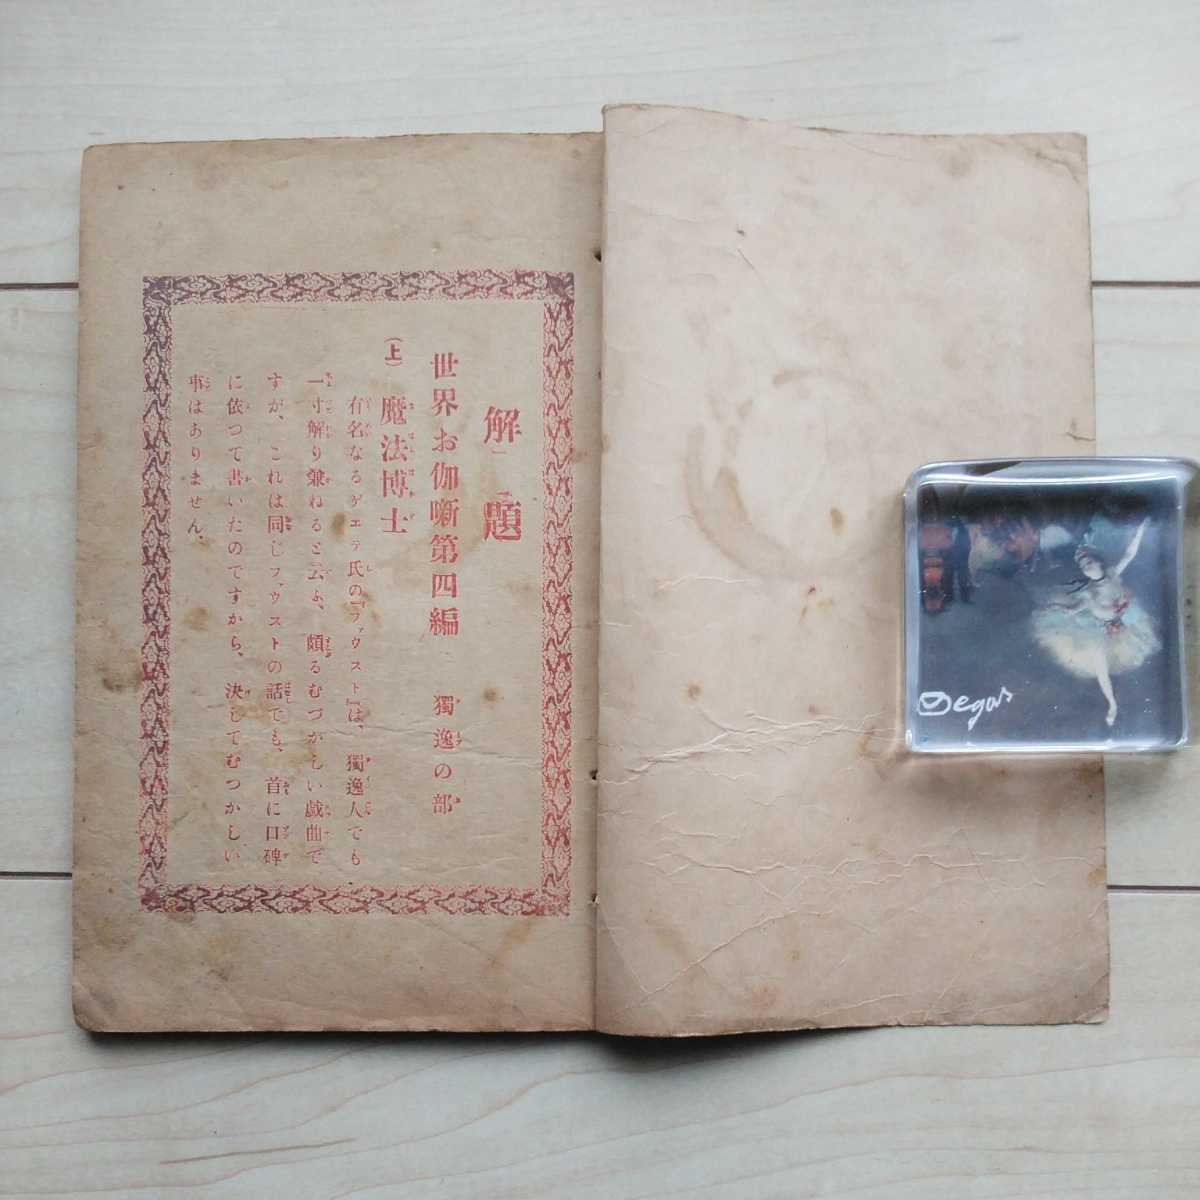 解題
世界お伽噺第四編　獨逸の部
（上）魔法博士
有名なるゲエテ氏の『ファウスト』は、獨逸人でも
一寸解り兼ねると云ふ、頗るむづかしい戯曲で
すが、これは同じファウストの話でも、首に口碑
に依つて書いたのですから、決してむつかしい
事はありません。
Degas